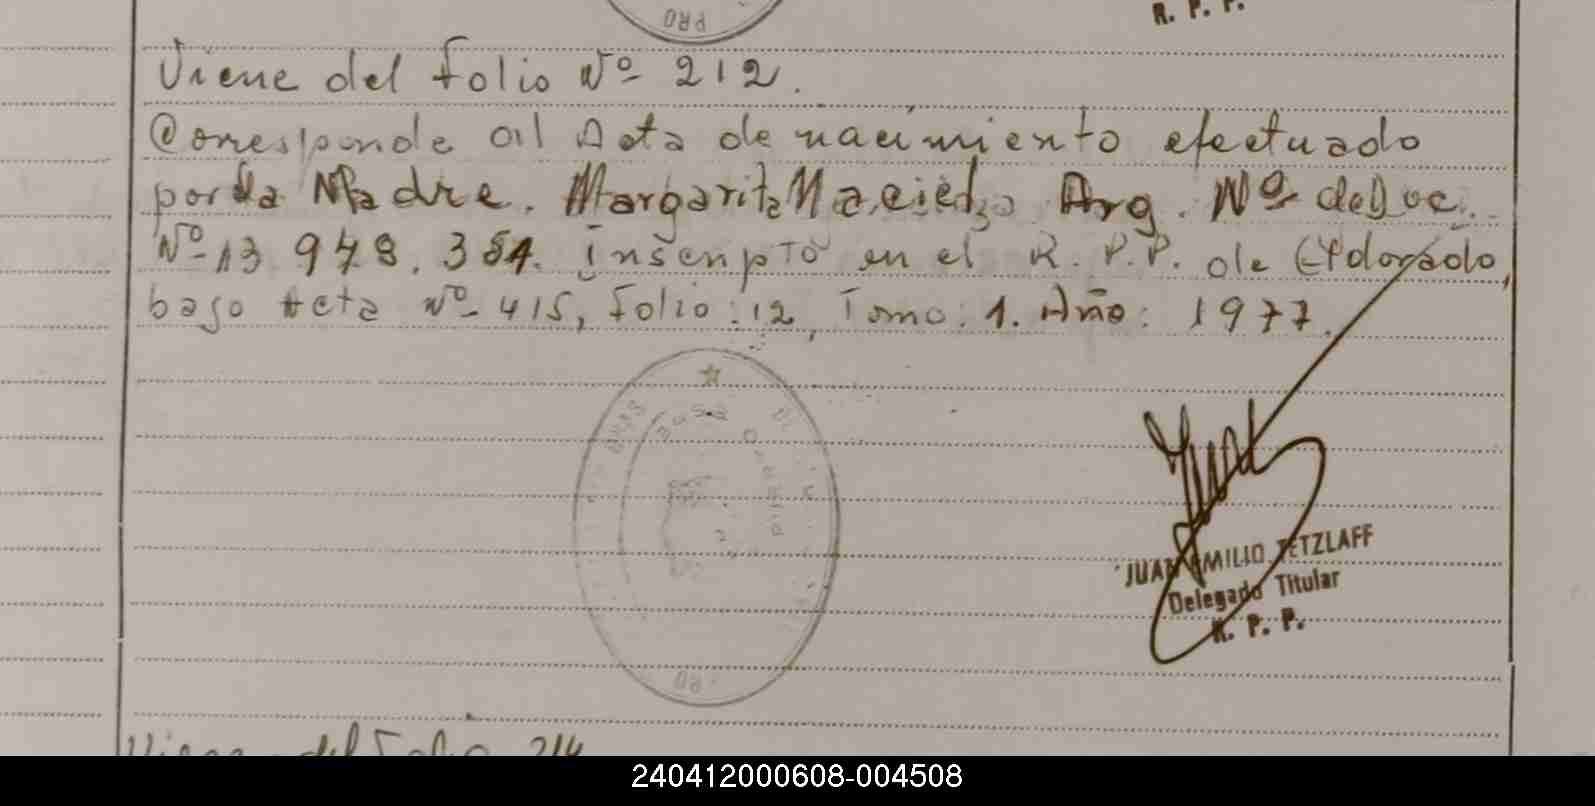 PRO
R. P. P.
Viene del folio Nº 212.
Corresponde al Acta de nacimiento efectuado
por la Madre. Margarita Maciel, Arg. Nº de Doc.
Nº 13 978. 354. inscripto en el R. P. P. de Eldorado,
bajo Acta Nº 415, folio: 12, Tomo: 1. Año: 1977.
JUAN EMILIO TETZLAFF
Delegado Titular
R. P. P.
Viene del Folio 214
240412000608-004508